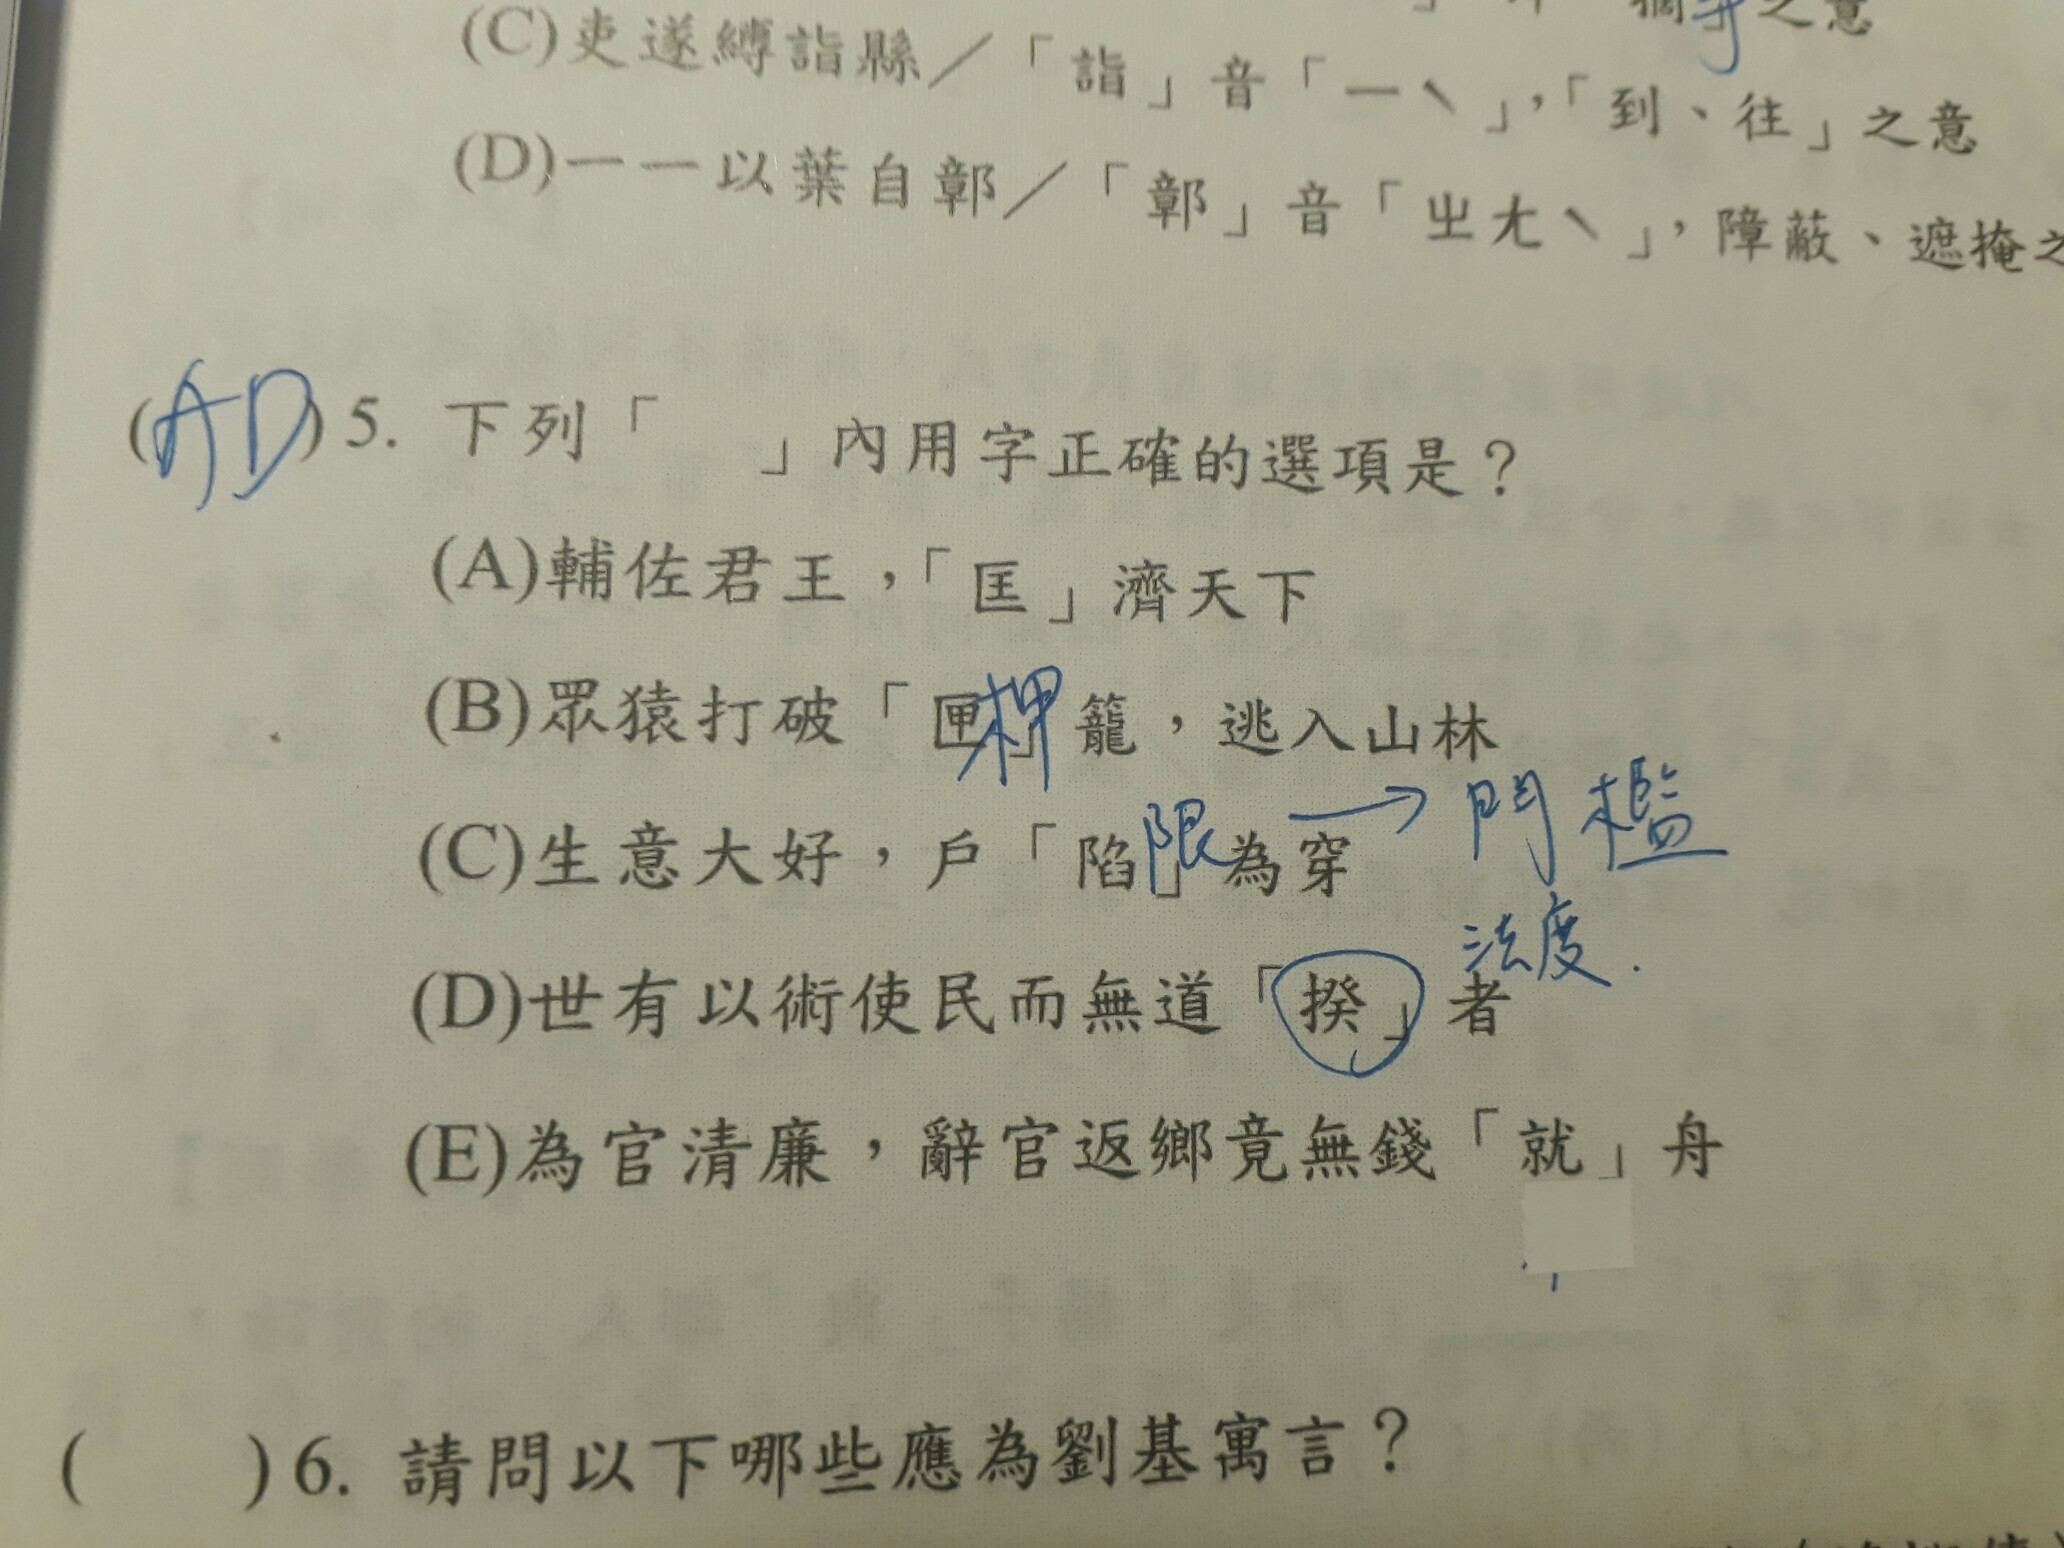 摘」之意
(C)吏遂縛詣縣／「詣」音「ㄧˋ」，「到、往」之意
(D)一一以葉自鄣／「鄣」音「ㄓㄤˋ」，障蔽、遮掩之
(AD) 5. 下列「 」內用字正確的選項是？
(A)輔佐君王，「匡」濟天下
(B)眾猿打破「匣」籠，逃入山林
柙
(C)生意大好，戶「陷」為穿
限 → 門檻
法度.
(D)世有以術使民而無道「揆」者
(E)為官清廉，辭官返鄉竟無錢「就」舟
( ) 6. 請問以下哪些應為劉基寓言？